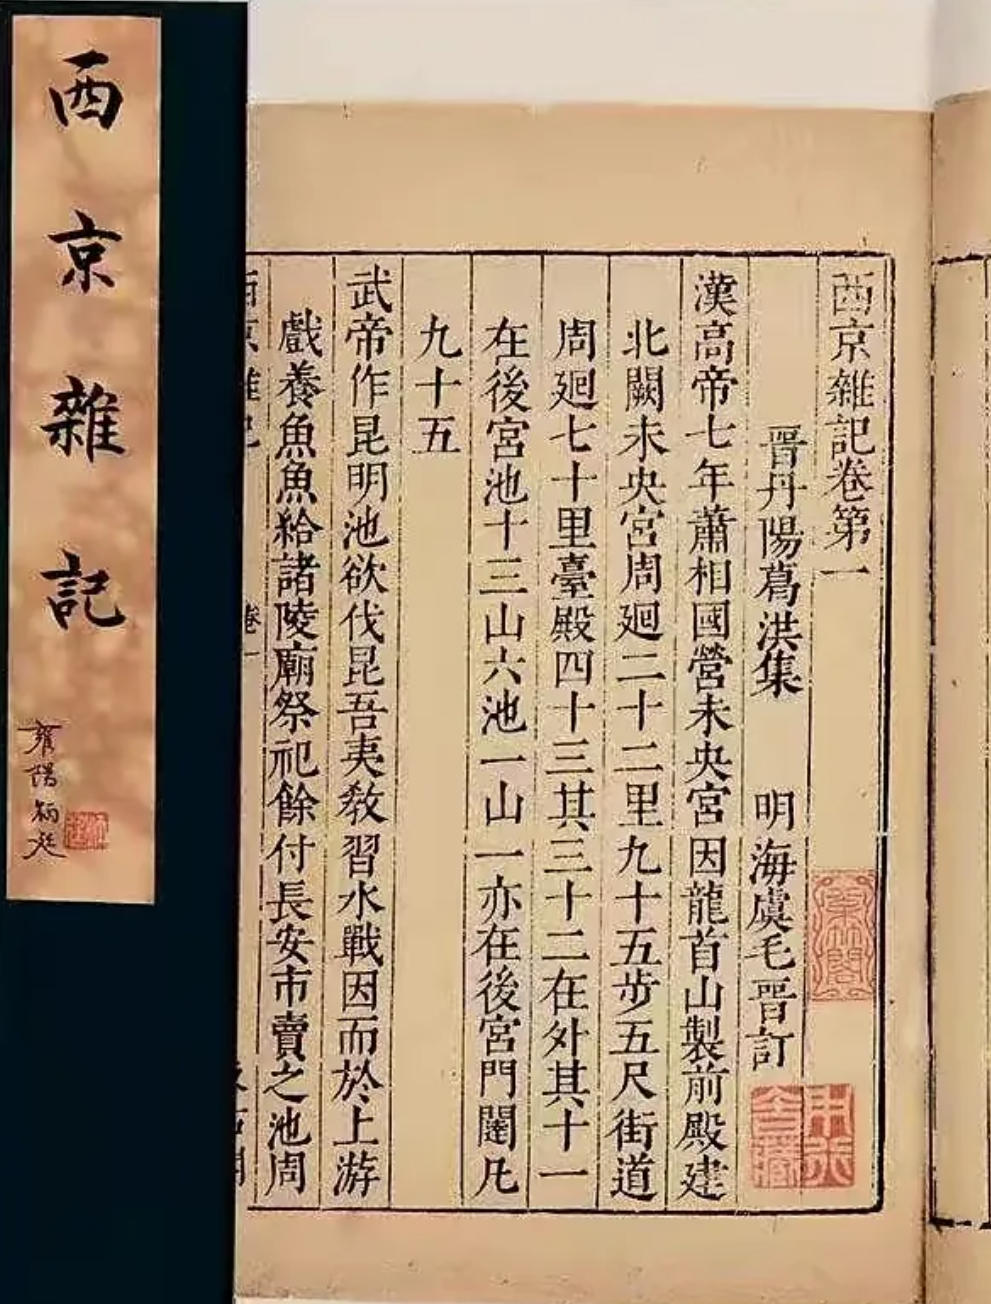 西京雜記
西京雜記卷第一
晉丹陽葛洪集 明海虞毛晉訂
漢高帝七年蕭相國營未央宮因龍首山製前殿建
北闕未央宮周廻二十二里九十五步五尺街道
周廻七十里臺殿四十三其三十二在外其十一
在後宮池十三山六池一山一亦在後宮門闥凡
九十五
武帝作昆明池欲伐昆吾夷教習水戰因而於上游
戲養魚魚給諸陵廟祭祀餘付長安市賣之池周
西京雜記 卷一